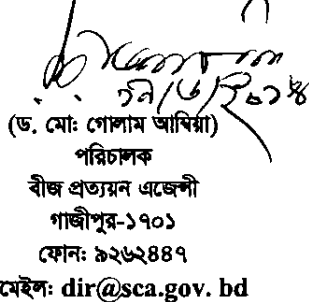 (ড. মোঃ গোলাম আম্বিয়া)
পরিচালক
বীজ প্রত্যয়ন এজেন্সী
গাজীপুর-১৭০১
ফোন: ৯২৬২৪৪৭
মেইল: dir@sca.gov. bd